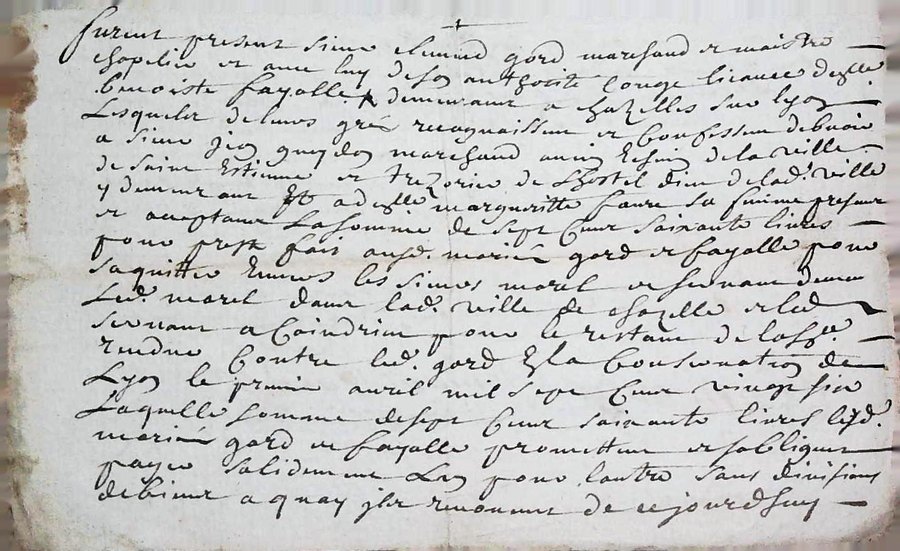 furent present sieur clemend gord marchand et maistre
chapelier et avec luy de son authorité conge licance dezelle
benoiste fayolle demeurant a chazelles sur lyon
Lesquels de leurs grés recognaissent et Confessent debvoir
a sieur jean guydon marchand ancien Echevin de la ville
de Saint Estienne et trezorier de Lhostel dieu de lad. ville
y demeurant Et a dezlle margueritte faure sa femme presant
et aceptant La somme de sept Cent soixante livres
pour prest fait ausd. mariés gord et fayolle pour
saquitter Envers les sieurs morel et servant demeu
Led. morel dans lad. ville de chazelle et led
servant a Coindrieu pour le restant de lasse.
rendue Contre led. gord En la Conservation de
Lyon le premier avril mil sept Cent vingt six
Laquelle somme de sept Cent soixante livres lesd.
mariés gord et fayolle promettent et sobligent
payer solidement Lun pour lautre sans division
de biens a quoy ils renoncent de ce jourdhuy